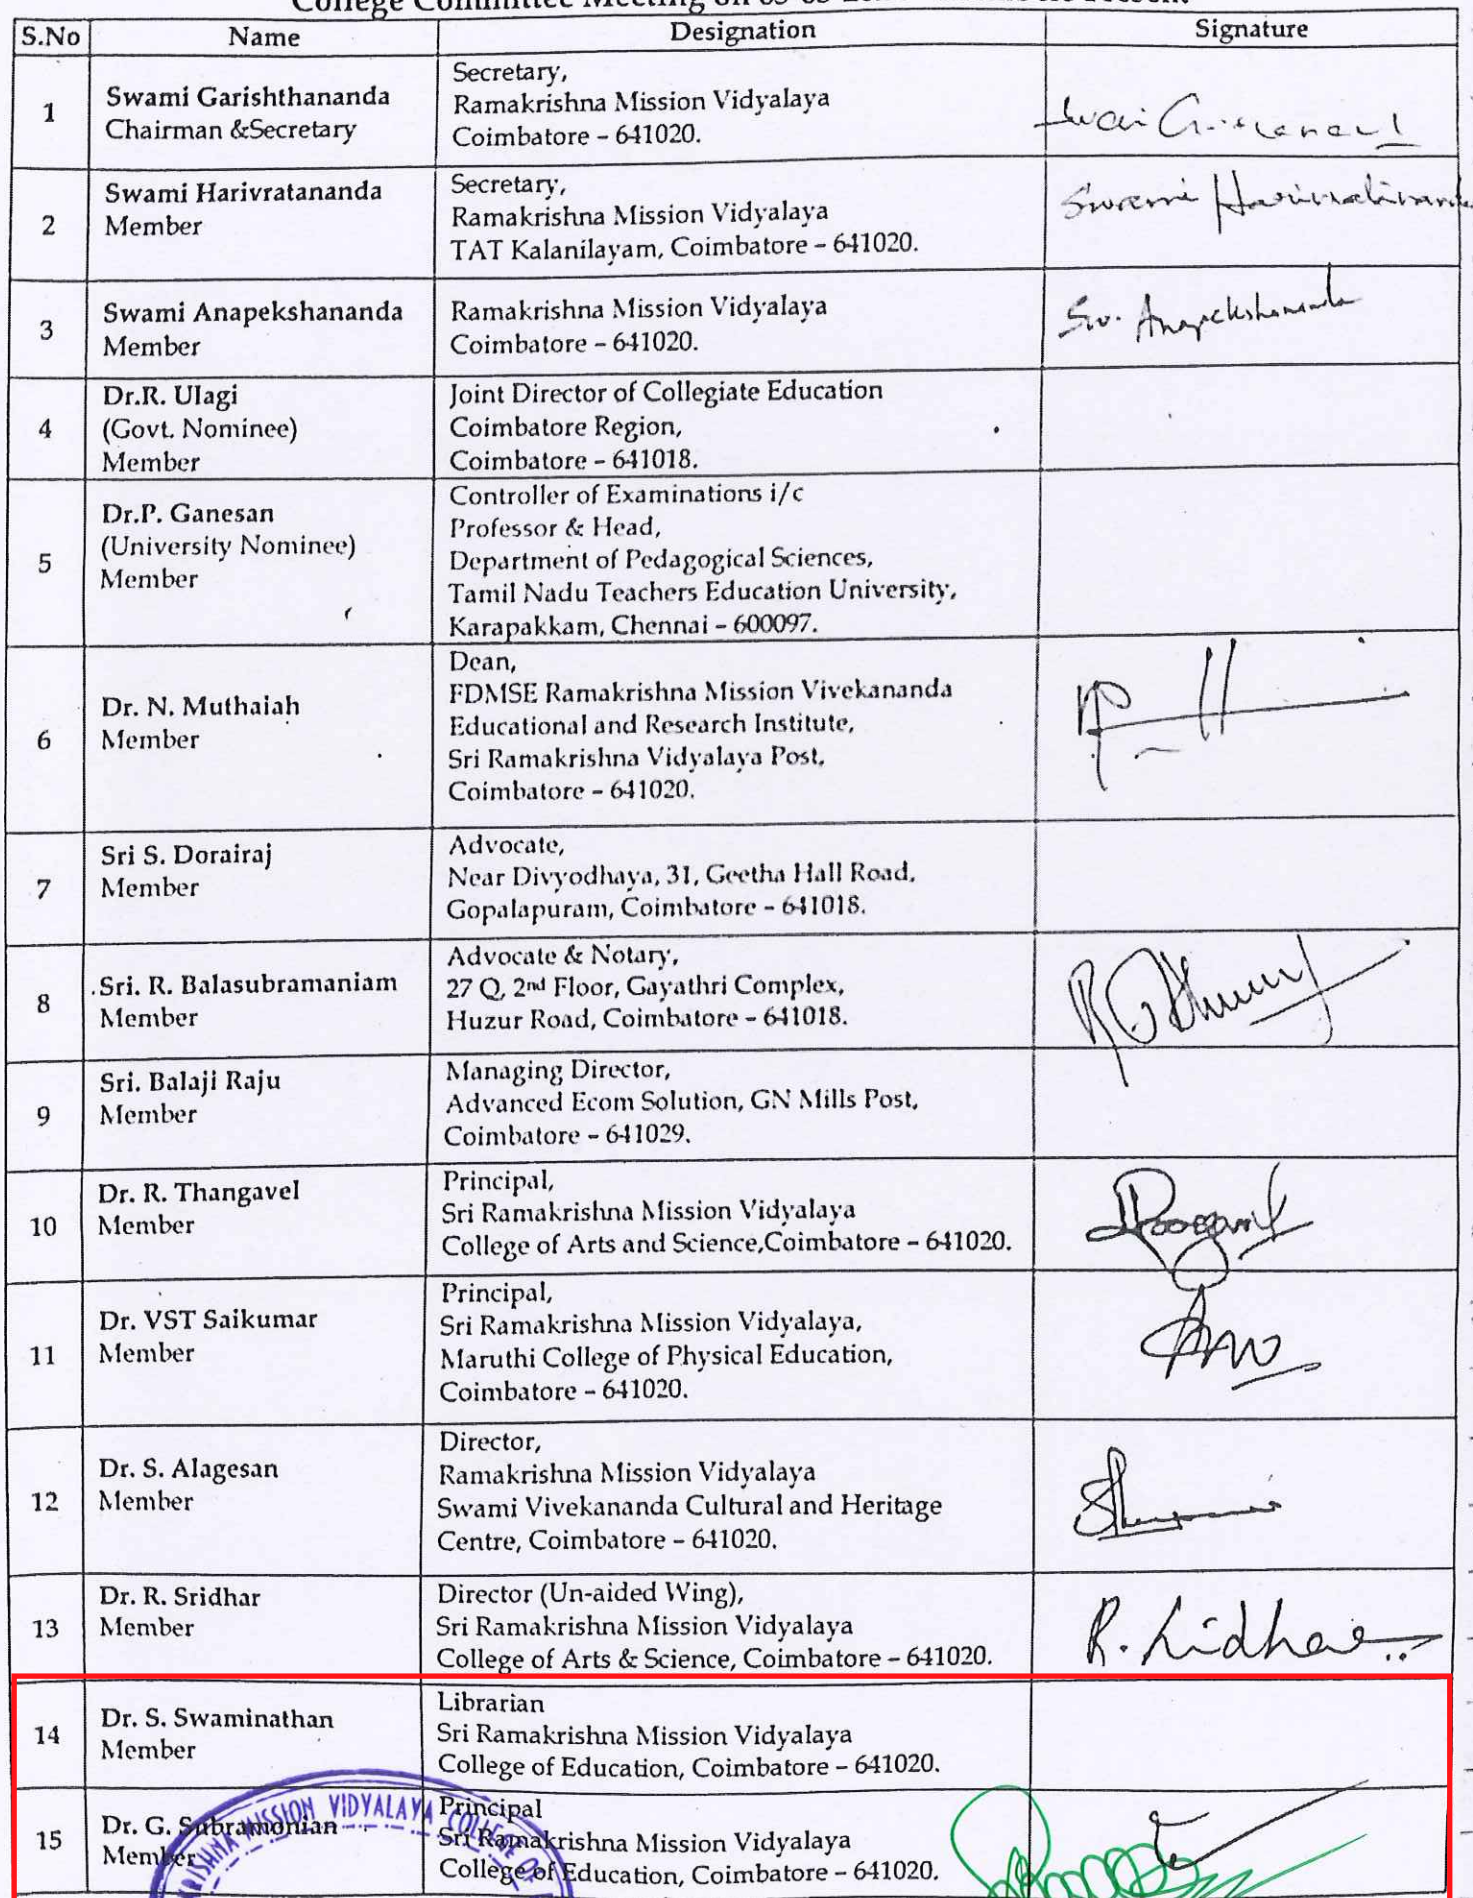 S.No Name Designation Signature
1 Swami Garishthananda Chairman &Secretary
Secretary,
Ramakrishna Mission Vidyalaya
Coimbatore – 641020.
2 Swami Harivratananda Member
Secretary,
Ramakrishna Mission Vidyalaya
TAT Kalanilayam, Coimbatore – 641020.
Swami Harivratananda
3 Swami Anapekshananda Member
Ramakrishna Mission Vidyalaya
Coimbatore – 641020.
Sw. Anapekshananda
4 Dr.R. Ulagi (Govt. Nominee) Member
Joint Director of Collegiate Education
Coimbatore Region,
Coimbatore – 641018.
5 Dr.P. Ganesan (University Nominee) Member
Controller of Examinations i/c
Professor & Head,
Department of Pedagogical Sciences,
Tamil Nadu Teachers Education University,
Karapakkam, Chennai – 600097.
6 Dr. N. Muthaiah Member
Dean,
FDMSE Ramakrishna Mission Vivekananda
Educational and Research Institute,
Sri Ramakrishna Vidyalaya Post,
Coimbatore – 641020.
7 Sri S. Dorairaj Member
Advocate,
Near Divyodhaya, 31, Geetha Hall Road,
Gopalapuram, Coimbatore – 641018.
8 .Sri. R. Balasubramaniam Member
Advocate & Notary,
27 Q, 2nd Floor, Gayathri Complex,
Huzur Road, Coimbatore – 641018.
9 Sri. Balaji Raju Member
Managing Director,
Advanced Ecom Solution, GN Mills Post,
Coimbatore – 641029.
10 Dr. R. Thangavel Member
Principal,
Sri Ramakrishna Mission Vidyalaya
College of Arts and Science,Coimbatore – 641020.
11 Dr. VST Saikumar Member
Principal,
Sri Ramakrishna Mission Vidyalaya,
Maruthi College of Physical Education,
Coimbatore – 641020.
12 Dr. S. Alagesan Member
Director,
Ramakrishna Mission Vidyalaya
Swami Vivekananda Cultural and Heritage
Centre, Coimbatore – 641020.
13 Dr. R. Sridhar Member
Director (Un-aided Wing),
Sri Ramakrishna Mission Vidyalaya
College of Arts & Science, Coimbatore – 641020.
R. Sridhar
14 Dr. S. Swaminathan Member
Librarian
Sri Ramakrishna Mission Vidyalaya
College of Education, Coimbatore – 641020.
15 Dr. G. Subramonian Member
Principal
Sri Ramakrishna Mission Vidyalaya
College of Education, Coimbatore – 641020.
MISSION VIDYALAYA COLLEGE OF